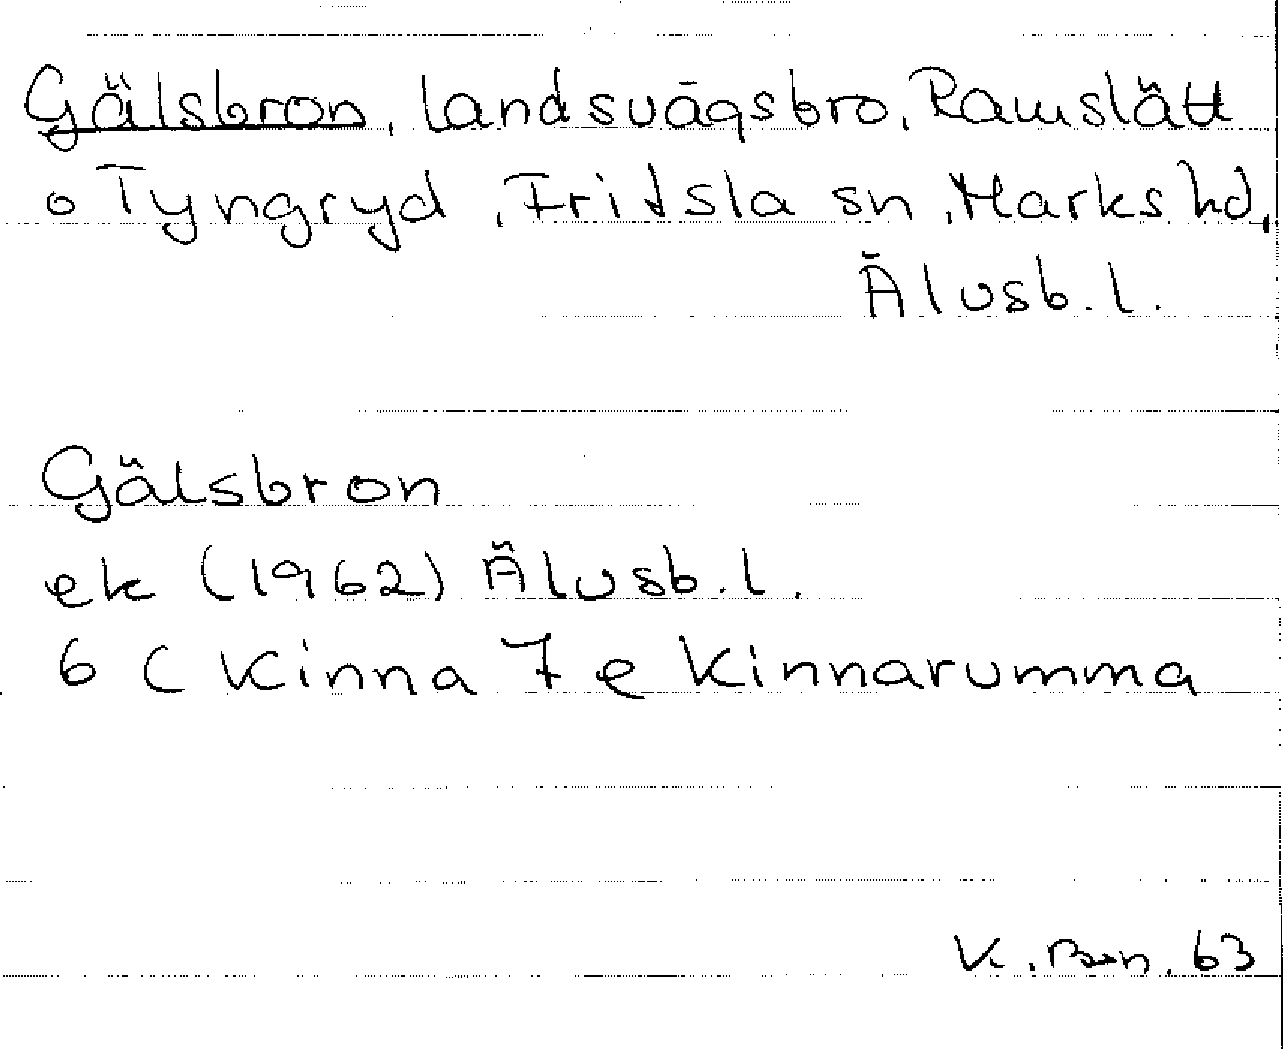 Gälsbron, landsvägsbro, Ramslätt
o Tyngryd, Fritsla sn, Marks hd,
Älvsb.l.
Gälsbron
ek (1962) Älvsb.l.
6 C Kinna 7 e Kinnarumma
K. 63